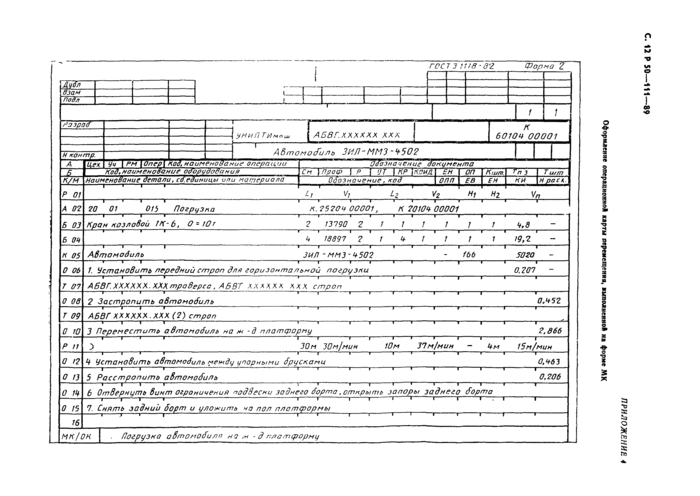 ГОСТ 3.1118-82 Форма 2
Дубл
Взам
Подл
1 1
Разраб
УНИПТИмаш АБВГ.XXXXXX XXX К 60104 00001
Автомобиль ЗИЛ-ММЗ-4502
Н контр.
А Цех Уч РМ Опер Код, наименование операции Обозначение документа
Б Код, наименование оборудования СМ Проф Р УТ КР КОИД ЕН ОП Кшт. Тпз Тшт
К/М Наименование детали, сб.единицы или материала Обозначение, код ОПП ЕВ ЕН КИ Н расх.
Р 01 L₁ V₁ L₂ V₂ H₁ H₂ Vп
А 02 20 01 015 Погрузка К.25204 00001, К 20104 00001
Б 03 Кран козловой 1К-6, Q=10т 2 13790 2 1 1 1 1 1 4,8 –
Б 04 4 18897 2 1 4 1 1 1 19,2 –
К 05 Автомобиль ЗИЛ-ММЗ-4502 - 166 5020 –
О 06 1. Установить передний строп для горизонтальной погрузки 0.207 –
Т 07 АБВГ.XXXXXX.XXX траверса, АБВГ XXXXXX XXX строп
О 08 2 Застропить автомобиль 0,452
Т 09 АБВГ XXXXXX.XXX (2) строп
О 10 3 Переместить автомобиль на ж-д платформу 2,866
Р 11 30м 30м/мин 10м 37м/мин – 4м 15м/мин
О 12 4 Установить автомобиль между упорными брусками 0,463
О 13 5 Расстропить автомобиль 0,206
О 14 6 Отвернуть винт ограничения подвески заднего борта, открыть запоры заднего борта
О 15 7. Снять задний борт и уложить на пол платформы
16
МК/ОК Погрузка автомобиля на ж-д платформу
С. 12 Р 50—111—89
Оформление операционной карты перемещения, выполненной на форме МК
ПРИЛОЖЕНИЕ 4